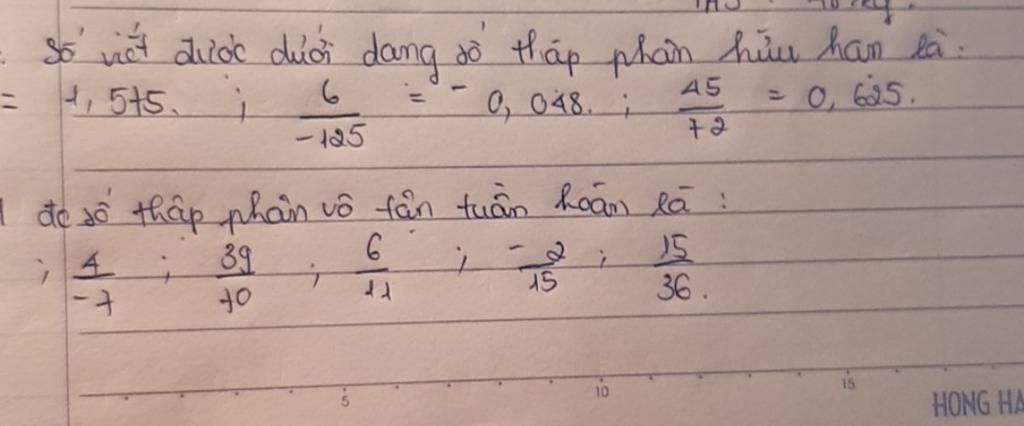 Số viết được dưới dạng số thập phân hữu hạn là:
= 1,575. ; 6/-125 = - 0,048. ; 45/72 = 0,625.
đc số thập phân vô tận tuần hoàn là :
; 4/-7 ; 39/70 ; 6/11 ; -2/15 ; 15/36.
5 10 15
HONG HA